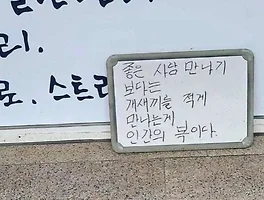 리.
로. 스트리
좋은 사람 만나기
보다는
개새끼를 적게
만나는게
인간의 복이다.